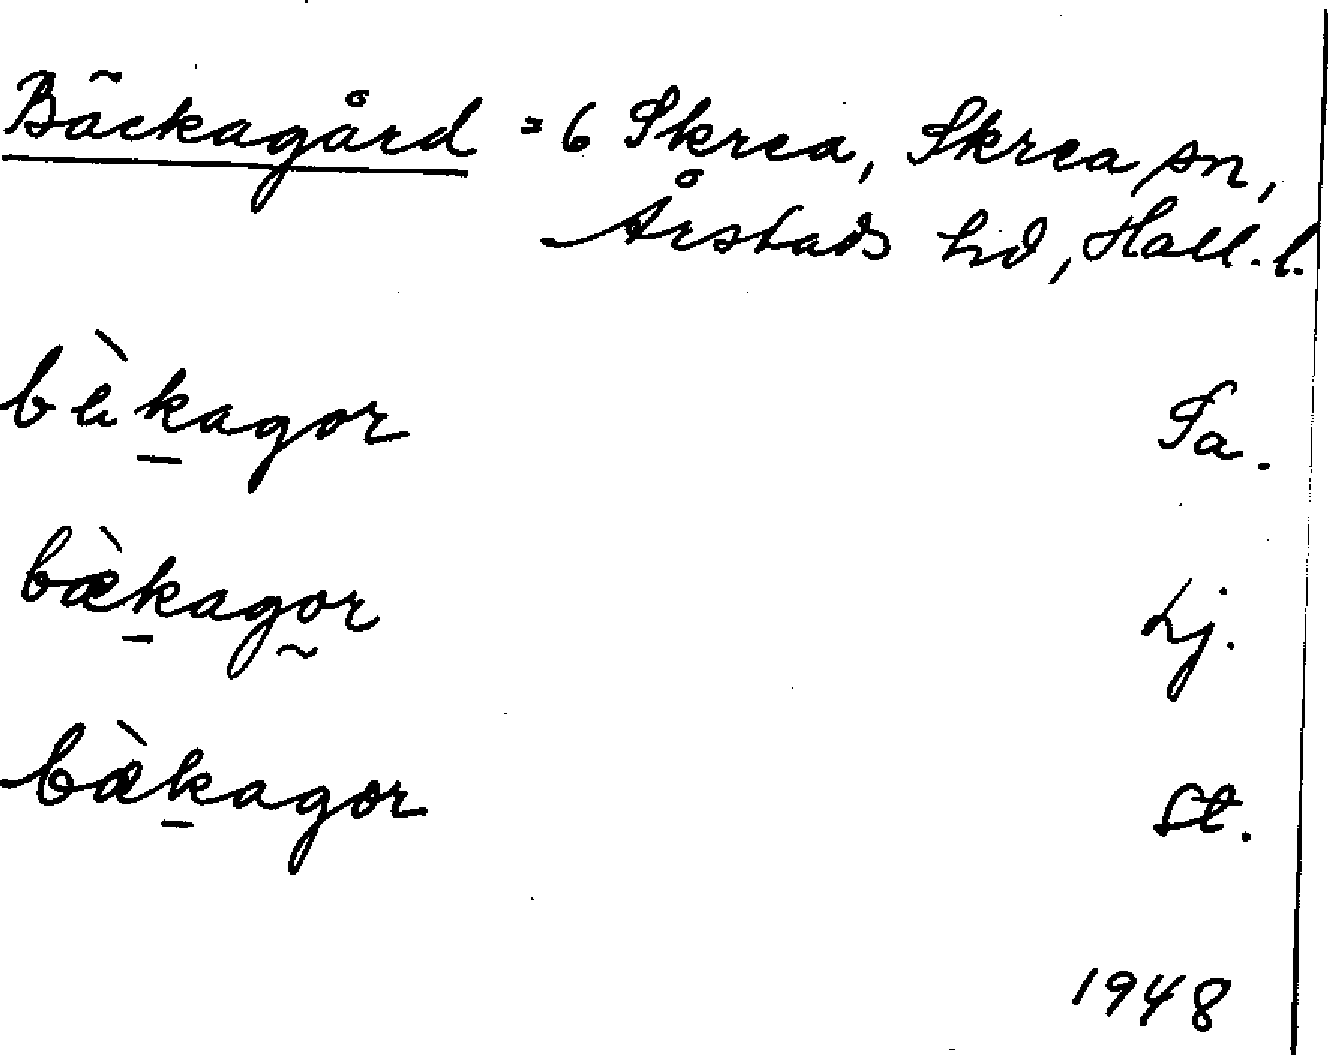 Bäckagård = 6 Skrea, Skrea sn,
Årstads hd, Hall. l.
bèkagor Sa.
bæ̀kagor Lj.
bæ̀kagor St.
1948